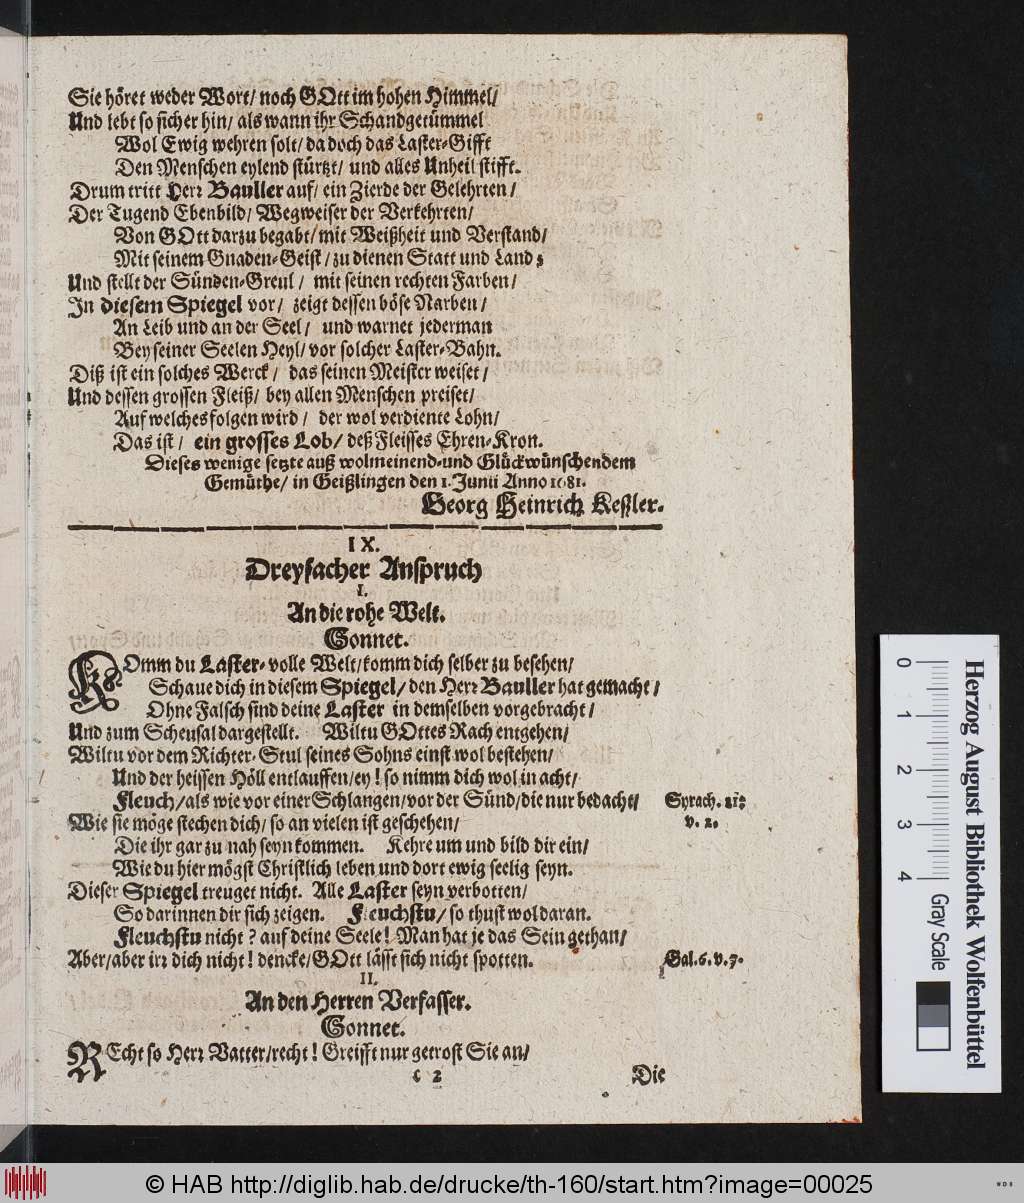 Sie höret weder Wort/ noch GOtt im hohen Himmel/
Und lebt so sicher hin/ als wann ihr Schandgetümmel
Wol Ewig wehren solt/ da doch das Laster-Gifft
Den Menschen eylend stürtzt/ und alles Unheil stifft.
Drum tritt Herr Bauller auf/ ein Zierde der Gelehrten/
Der Tugend Ebenbild/ Wegweiser der Verkehrten/
Von GOtt darzu begabt/ mit Weißheit und Verstand/
Mit seinem Gnaden-Geist/ zu dienen Statt und Land;
Und stellt der Sünden-Greul/ mit seinen rechten Farben/
In diesem Spiegel vor/ zeigt dessen böse Narben/
An Leib und an der Seel/ und warnet jederman
Bey seiner Seelen Heyl/ vor solcher Laster-Bahn.
Diß ist ein solches Werck/ das seinen Meister weiset/
Und dessen grossen Fleiß/ bey allen Menschen preiset/
Auf welches folgen wird/ der wol verdiente Lohn/
Das ist/ ein grosses Lob/ deß Fleisses Ehren-Kron.
Dieses wenige setzte auß wolmeinend-und Glückwünschendem
Gemüthe/ in Geißlingen den 1. Junii Anno 1681.
Georg Heinrich Keßler.
IX.
Dreyfacher Anspruch
I.
An die rohe Welt.
Sonnet.
KOmm du Laster-volle Welt/ komm dich selber zu besehen/
Schaue dich in diesem Spiegel/ den Herr Bauller hat gemacht/
Ohne Falsch sind deine Laster in demselben vorgebracht/
Und zum Scheusal dargestellt. Wiltu GOttes Rach entgehen/
Wiltu vor dem Richter-Stul seines Sohns einst wol bestehen/
Und der heissen Höll entlauffen/ ey! so nimm dich wol in acht/
Fleuch/ als wie vor einer Schlangen/ vor der Sünd/ die nur bedacht/ Syrach. 21;
Wie sie möge stechen dich/ so an vielen ist geschehen/ v. 2.
Die ihr gar zu nah seyn kommen. Kehre um und bild dir ein/
Wie du hier mögst Christlich leben und dort ewig seelig seyn.
Dieser Spiegel treuget nicht. Alle Laster seyn verbotten/
So darinnen dir sich zeigen. Fleuchstu/ so thust wol daran.
Fleuchstu nicht? auf deine Seele! Man hat je das Sein gethan/
Aber/ aber irr dich nicht! dencke/ GOtt lässt sich nicht spotten. Gal. 6. v. 7.
II.
An den Herren Verfasser.
Sonnet.
REcht so Herr Vatter/ recht! Greifft nur getrost Sie an/
c 2 Die
Herzog August Bibliothek Wolfenbüttel
0 1 2 3 4 Gray Scale
© HAB http://diglib.hab.de/drucke/th-160/start.htm?image=00025